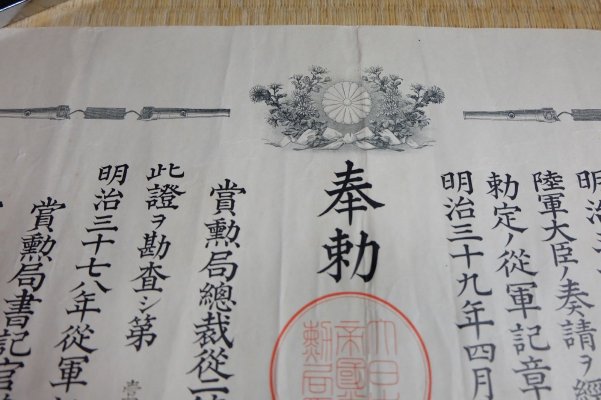 明治三
陸軍大臣ノ奏請ヲ經
勅定ノ從軍記章
明治三十九年四月
奉勅
賞勲局總裁從二位
此證ヲ勘査シ第
明治三十七八年從軍
賞勲局書記官